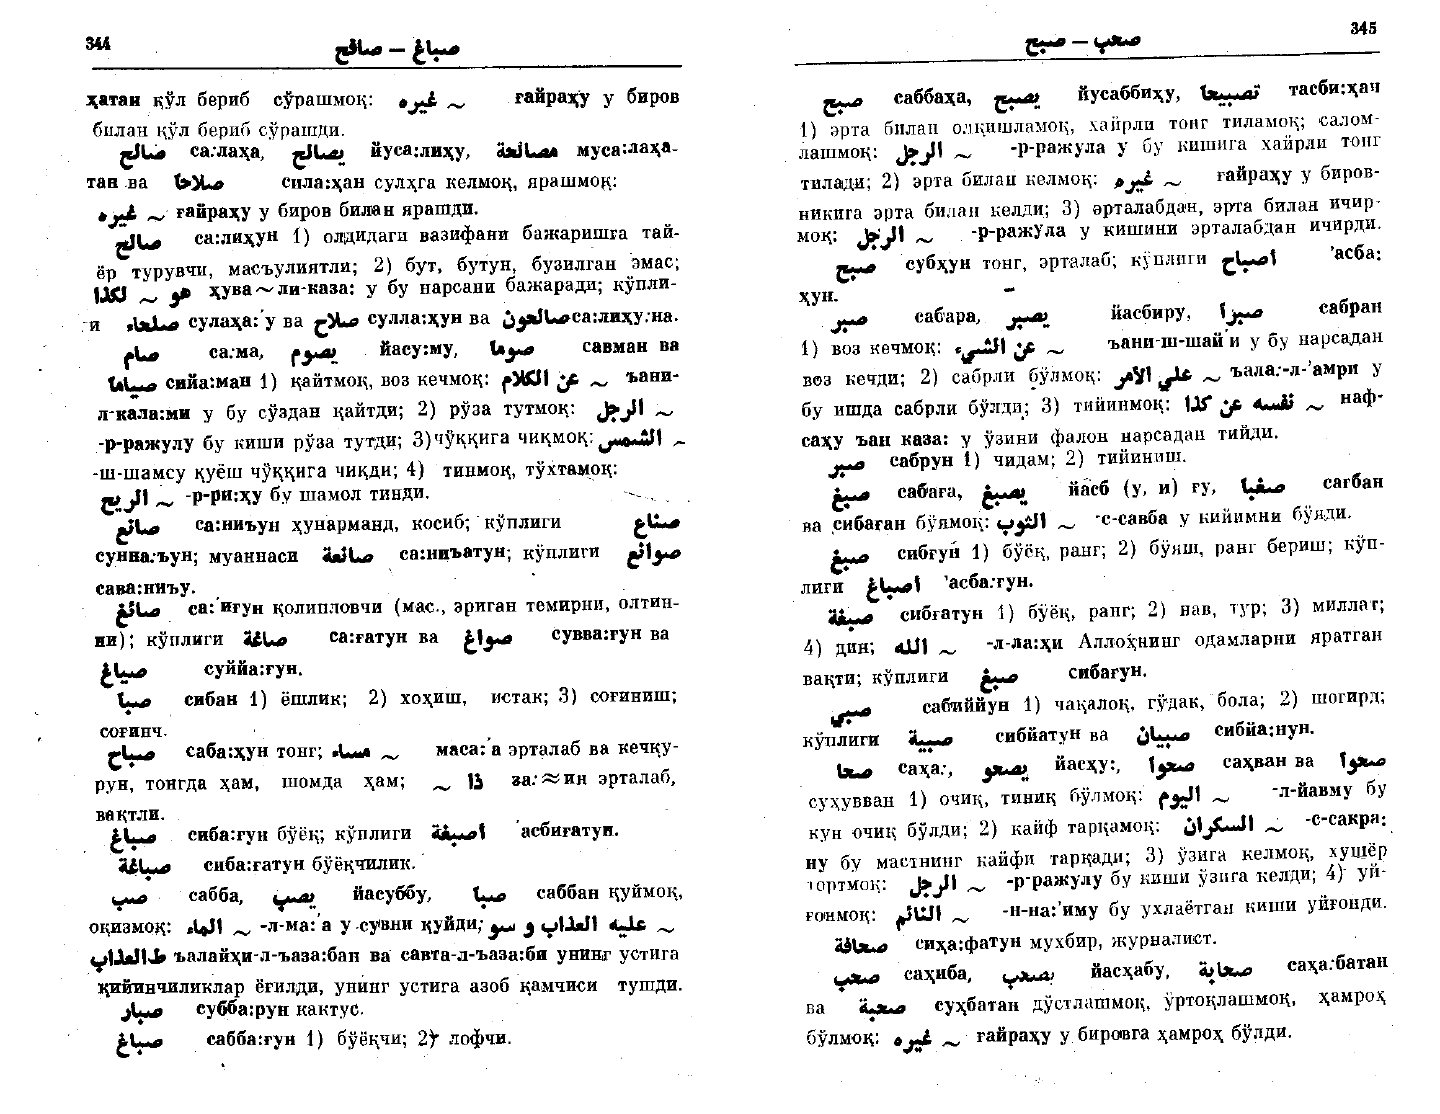 344
صباغ — صافح
ҳатан қўл бериб сўрашмоқ: غيره ~ ғайраҳу у биров
билан қўл бериб сўрашди.
صالح са:лаҳа, يصالح йуса:лиҳу, مصالحة муса:лаҳа-
тан ва صلاحا сила:ҳан сулҳга келмоқ, ярашмоқ:
غيره ~ ғайраҳу у биров билан ярашди.
صالح са:лиҳун 1) олдидаги вазифани бажаришга тай-
ёр турувчи, масъулиятли; 2) бут, бутун, бузилган эмас;
هو ~ لكذا ҳува~ли-каза: у бу нарсани бажаради; кўпли-
ги صلحاء сулаҳа:'у ва صلاح сулла:ҳун ва صالحون са:лиҳу:на.
صام са:ма, يصوم йасу:му, صوما савман ва
صياما сийа:ман 1) қайтмоқ, воз кечмоқ: عن الكلام ~ ъани-
л-кала:ми у бу сўздан қайтди; 2) рўза тутмоқ: الرجل ~
-р-ражулу бу киши рўза тутди; 3) чўққига чиқмоқ: الشمس ~
-ш-шамсу қуёш чўққига чиқди; 4) тинмоқ, тўхтамоқ:
الريح ~ -р-ри:ҳу бу шамол тинди.
صانع са:ниъун ҳунарманд, косиб; кўплиги صناع
сунна:ъун; муаннаси صانعة са:ниъатун; кўплиги صوانع
сава:ниъу.
صائغ са:'иғун қолипловчи (мас., эриган темирни, олтин-
ни); кўплиги صاغة са:ғатун ва صواغ сувва:ғун ва
صياغ суййа:ғун.
صبا сибан 1) ёшлик; 2) хоҳиш, истак; 3) соғиниш;
соғинч.
صباح саба:ҳун тонг; مساء ~ маса:'а эрталаб ва кечқу-
рун, тонгда ҳам, шомда ҳам; ذا ~ за:≈ин эрталаб,
вақтли.
صباغ сиба:ғун бўёқ; кўплиги اصبغة 'асбиғатун.
صباغة сиба:ғатун бўёқчилик.
صب сабба, يصب йасуббу, صبا саббан қуймоқ,
оқизмоқ: الماء ~ -л-ма:'а у сувни қуйди; عليه العذاب و سو ~
ط العذاب ъалайҳи-л-ъаза:бан ва савта-л-ъаза:би унинг устига
қийинчиликлар ёғилди, унинг устига азоб қамчиси тушди.
صبار субба:рун кактус.
صباغ сабба:ғун 1) бўёқчи; 2) лофчи.
صحب — صبح
345
صبح саббаҳа, يصبح йусаббиҳу, تصبيحا тасби:ҳан
1) эрта билан олқишламоқ, хайрли тонг тиламоқ; салом-
лашмоқ: الرجل ~ -р-ражула у бу кишига хайрли тонг
тилади; 2) эрта билан келмоқ: غيره ~ ғайраҳу у биров-
никига эрта билан келди; 3) эрталабдан, эрта билан ичир-
моқ: الرجل ~ -р-ражула у кишини эрталабдан ичирди.
صبح субҳун тонг, эрталаб; кўплиги اصباح 'асба:
ҳун.
صبر сабара, يصبر йасбиру, صبرا сабран
1) воз кечмоқ: عن الشيء ~ ъани-ш-шай'и у бу нарсадан
воз кечди; 2) сабрли бўлмоқ: علي الأمر ~ ъала:-л-'амри у
бу ишда сабрли бўлди; 3) тийинмоқ: نفسه عن كذا ~ наф-
саҳу ъан каза: у ўзини фалон нарсадан тийди.
صبر сабрун 1) чидам; 2) тийиниш.
صبغ сабаға, يصبغ йасб (у, и) ғу, صبغا сағбан
ва сибаған бўямоқ: الثوب ~ -с-савба у кийимни бўяди.
صبغ сибғун 1) бўёқ, ранг; 2) бўяш, ранг бериш; кўп-
лиги اصباغ 'асба:ғун.
صبغة сибғатун 1) бўёқ, ранг; 2) нав, тур; 3) миллат;
4) дин; الله ~ -л-ла:ҳи Аллоҳнинг одамларни яратган
вақти; кўплиги صبغ сибағун.
صبي сабиййун 1) чақалоқ, гўдак, бола; 2) шогирд;
кўплиги صبية сибйатун ва صبيان сибйа:нун.
صحا саҳа:, يصحو йасҳу:, صحوا саҳван ва صحوا
суҳувван 1) очиқ, тиниқ бўлмоқ: اليوم ~ -л-йавму бу
кун очиқ бўлди; 2) кайф тарқамоқ: السكران ~ -с-сакра:
ну бу мастнинг кайфи тарқади; 3) ўзига келмоқ, хушёр
тортмоқ: الرجل ~ -р-ражулу бу киши ўзига келди; 4) уй-
ғонмоқ: النائم ~ -н-на:'иму бу ухлаётган киши уйғонди.
صحافة сиҳа:фатун мухбир, журналист.
صحب саҳиба, يصحب йасҳабу, صحابة саҳа:батан
ва صحبة суҳбатан дўстлашмоқ, ўртоқлашмоқ, ҳамроҳ
бўлмоқ: غيره ~ ғайраҳу у бировга ҳамроҳ бўлди.